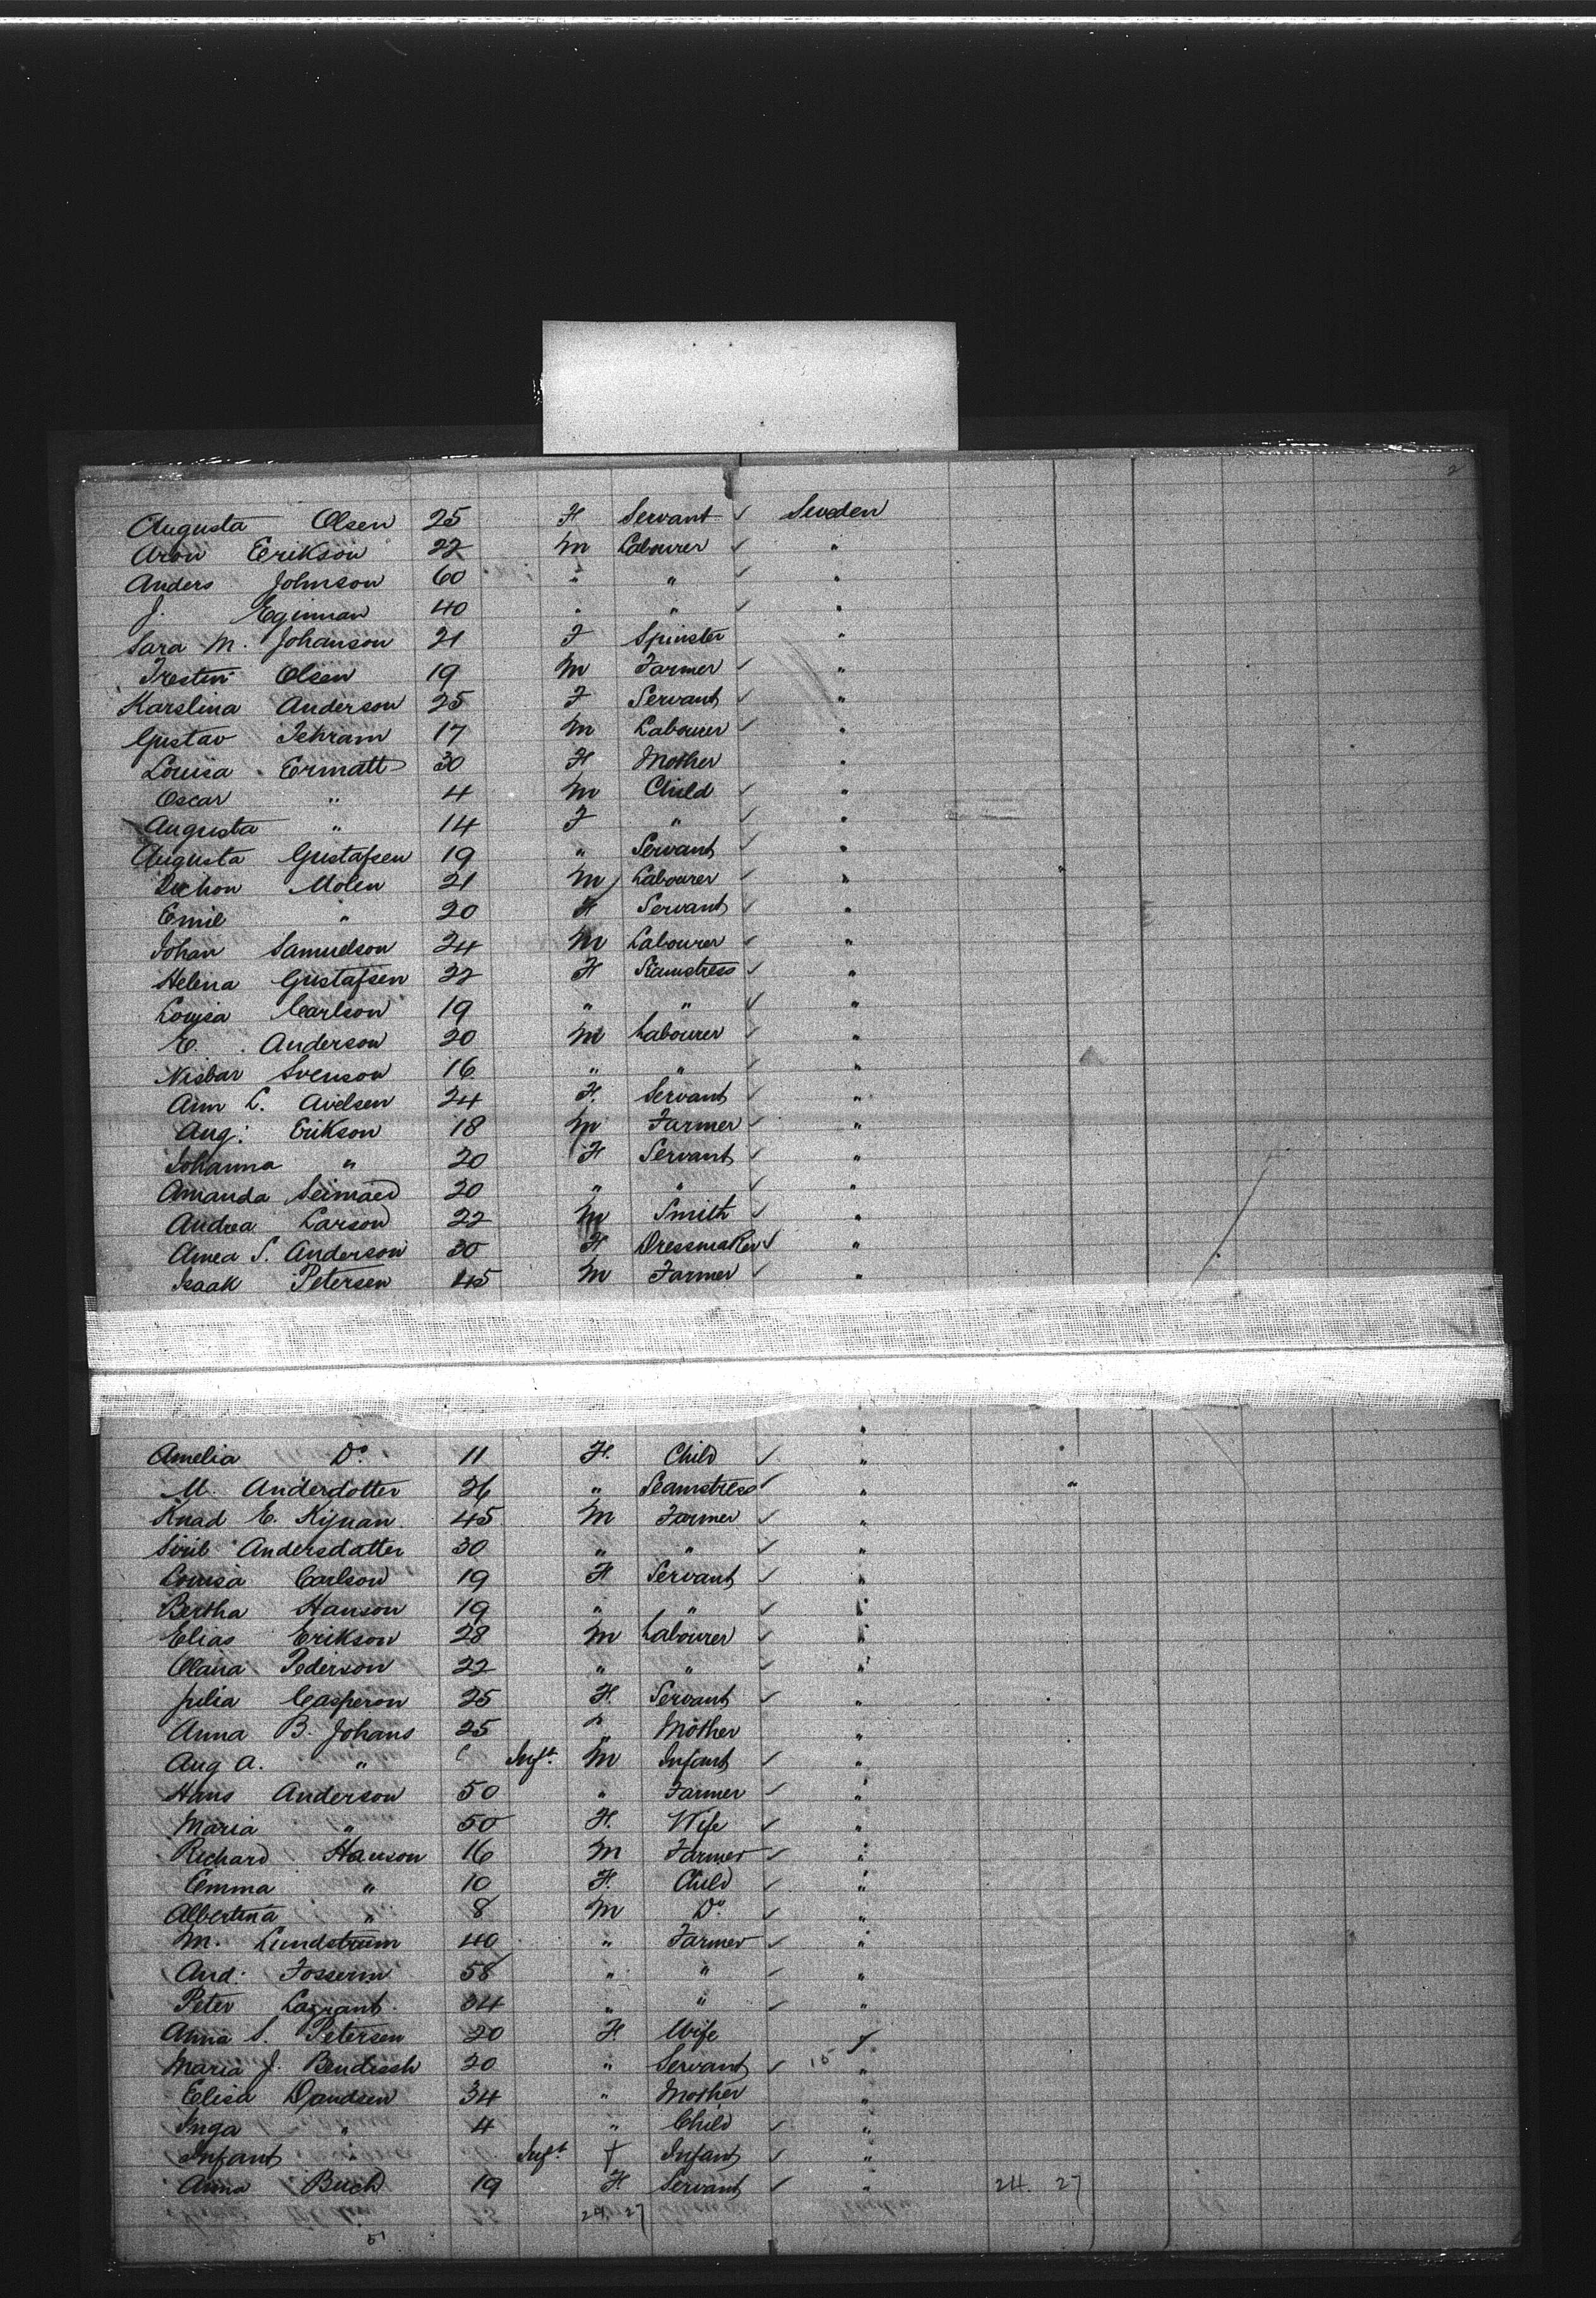 2
Augusta Olsen 25 F Servant ✓ Sweden
Aron Erikson 22 M Labourer ✓ "
Anders Johnson 60 " " ✓ "
J. Eginman 40 " " ✓ "
Sara M. Johanson 21 F Spinster "
Olsen 19 M Farmer ✓ "
Karslina Anderson 25 F Servant ✓ "
Gustav 17 M Labourer ✓ "
Louisa Ermatt 30 F Mother "
Oscar " 4 M Child ✓ "
Augusta " 14 F " ✓ "
Augusta Gustafsen 19 " Servant ✓ "
Molen 21 M Labourer ✓ " "
Emil " 20 F Servant ✓ "
Johan Samuelson 24 M Labourer ✓ "
Helena Gustafsen 22 F Seamstress ✓ "
Louisa Carlson 19 " " ✓ "
E. Anderson 20 M Labourer ✓ "
Nisbar Svenson 16 " " ✓ "
Ann L. Avelsen 24 F. Servant ✓ "
Aug: Erikson 18 M Farmer ✓ "
Johanna " 20 F Servant ✓ "
Amanda 20 " " ✓ "
Andrea Larson 22 M Smith ✓ "
Amea S. Anderson 30 F Dressmaker ✓ "
Isaak Petersen 45 M Farmer ✓ "
"
Amelia Do. 11 F. Child ✓ " "
M. Anderdotter 26 " Seamstress ✓ " "
Knad E. Kijnan 45 M Farmer ✓ "
Andersdatter 30 " " ✓ "
Louisa Carlson 19 F Servant ✓ "
Bertha Hanson 19 " " ✓ "
Elias Erikson 28 M Labourer ✓ "
Pederson 22 " " ✓ "
Julia Casperon 25 F. Servant ✓ "
Anna B. Johans 25 " Mother "
Aug A. " Inft. M Infant ✓ "
Hans Anderson 50 " Farmer ✓ "
Maria " 50 F. Wife ✓ "
Richard Hanson 16 M Farmer ✓ "
Emma " 10 F. Child ✓ "
Albertina " 8 M Do. ✓ "
M. Lundstrum 40 " Farmer ✓ "
And: Fosserin 58 " " ✓ "
Peter Lagrant 34 " " ✓ "
Anna S. Petersen 20 F. Wife ✓
Maria J. Bendisch 20 " Servant ✓ 15 "
Elisa 34 " Mother "
Inga " 4 " Child ✓ "
Infant " Inft. † Infant ✓ "
Anna Buch 19 F Servant ✓ " 24. 27
24. 27
51